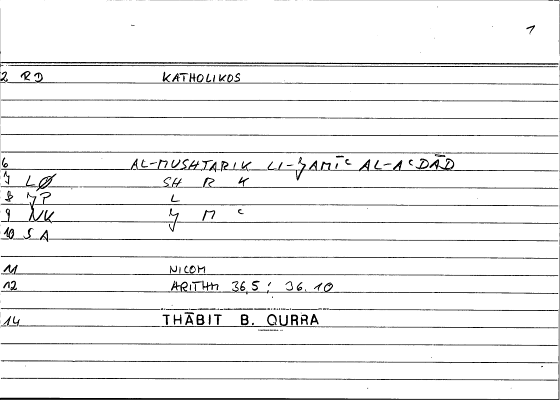 1
2 RD KATHOLIKOS
6 AL-MUSHTARIK LI-ǦAMĪʿ AL-AʿDĀD
7 LØ SH R K
8 JP L
9 NK Ǧ M ʿ
10 SA
11 NICOM
12 ARITHM 36,5; 36.10
14 THĀBIT B. QURRA